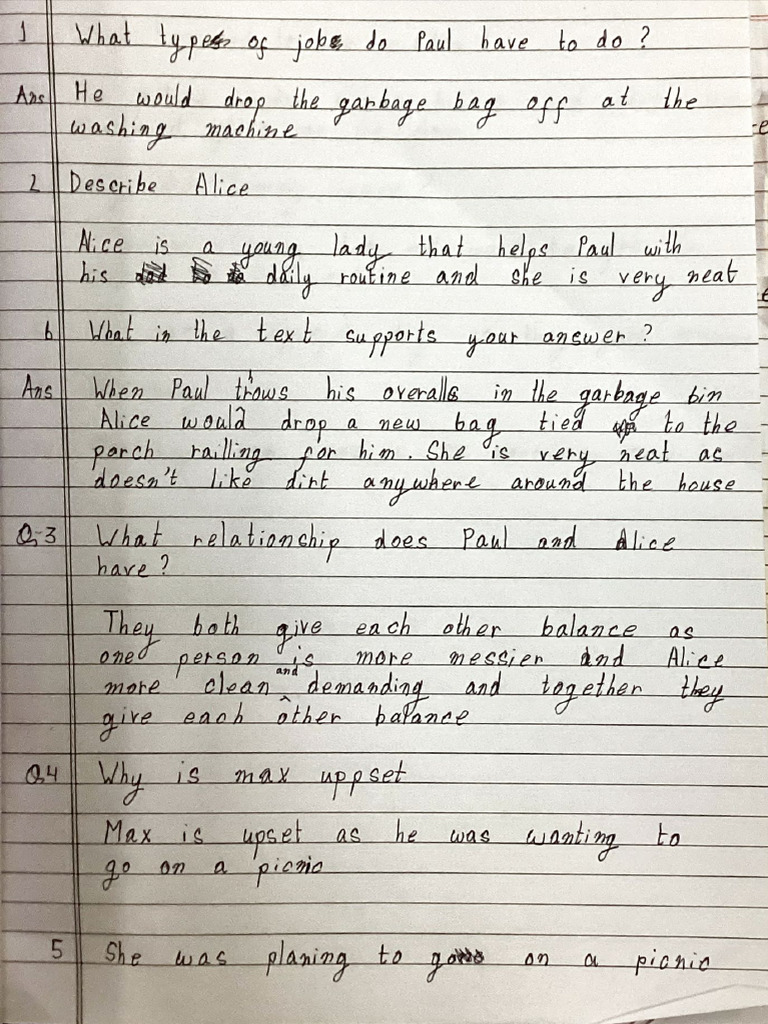 1 What types of jobs do Paul have to do ?
Ans He would drop the garbage bag off at the
washing machine
2 Describe Alice
Alice is a young lady that helps Paul with
his daily routine and she is very neat
b What in the text supports your answer ?
Ans When Paul trows his overalls in the garbage bin
Alice would drop a new bag tied to the
porch railling for him. She is very neat as
doesn't like dirt anywhere around the house
Q-3 What relationship does Paul and Alice
have ?
They both give each other balance as
one person is more messier and Alice
more clean and demanding and together they
give each other balance
Q4 Why is max uppset
Max is upset as he was wanting to
go on a picnic
5 She was planing to go on a picnic